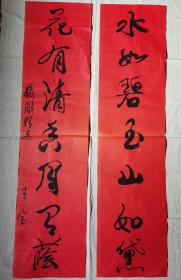 水如碧玉山如黛
花有清香月有荫